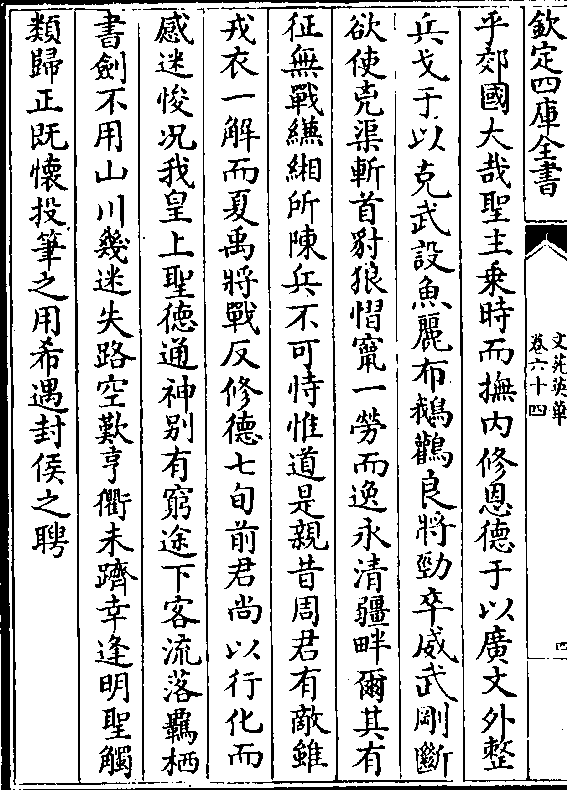 欽定四庫全書
文苑英華
卷六十四
四
乎郊國大哉聖主乗時而撫内修恩德于以廣文外整
兵戈于以克武設魚麗布鵝鸛良將勁卒威武剛斷
欲使兇渠斬首豺狼慴竄一勞而逸永清疆畔爾其有
征無戰繎緗所陳兵不可恃惟道是親昔周君有敵雖
戎衣一解而夏禹將戰反修德七旬前君尚以行化而
感迷悛况我皇上聖德通神别有窮途下客流落羈栖
書劍不用山川幾迷失路空歎亨衢未躋幸逢明聖觸
類歸正既懷投筆之用希遇封侯之聘